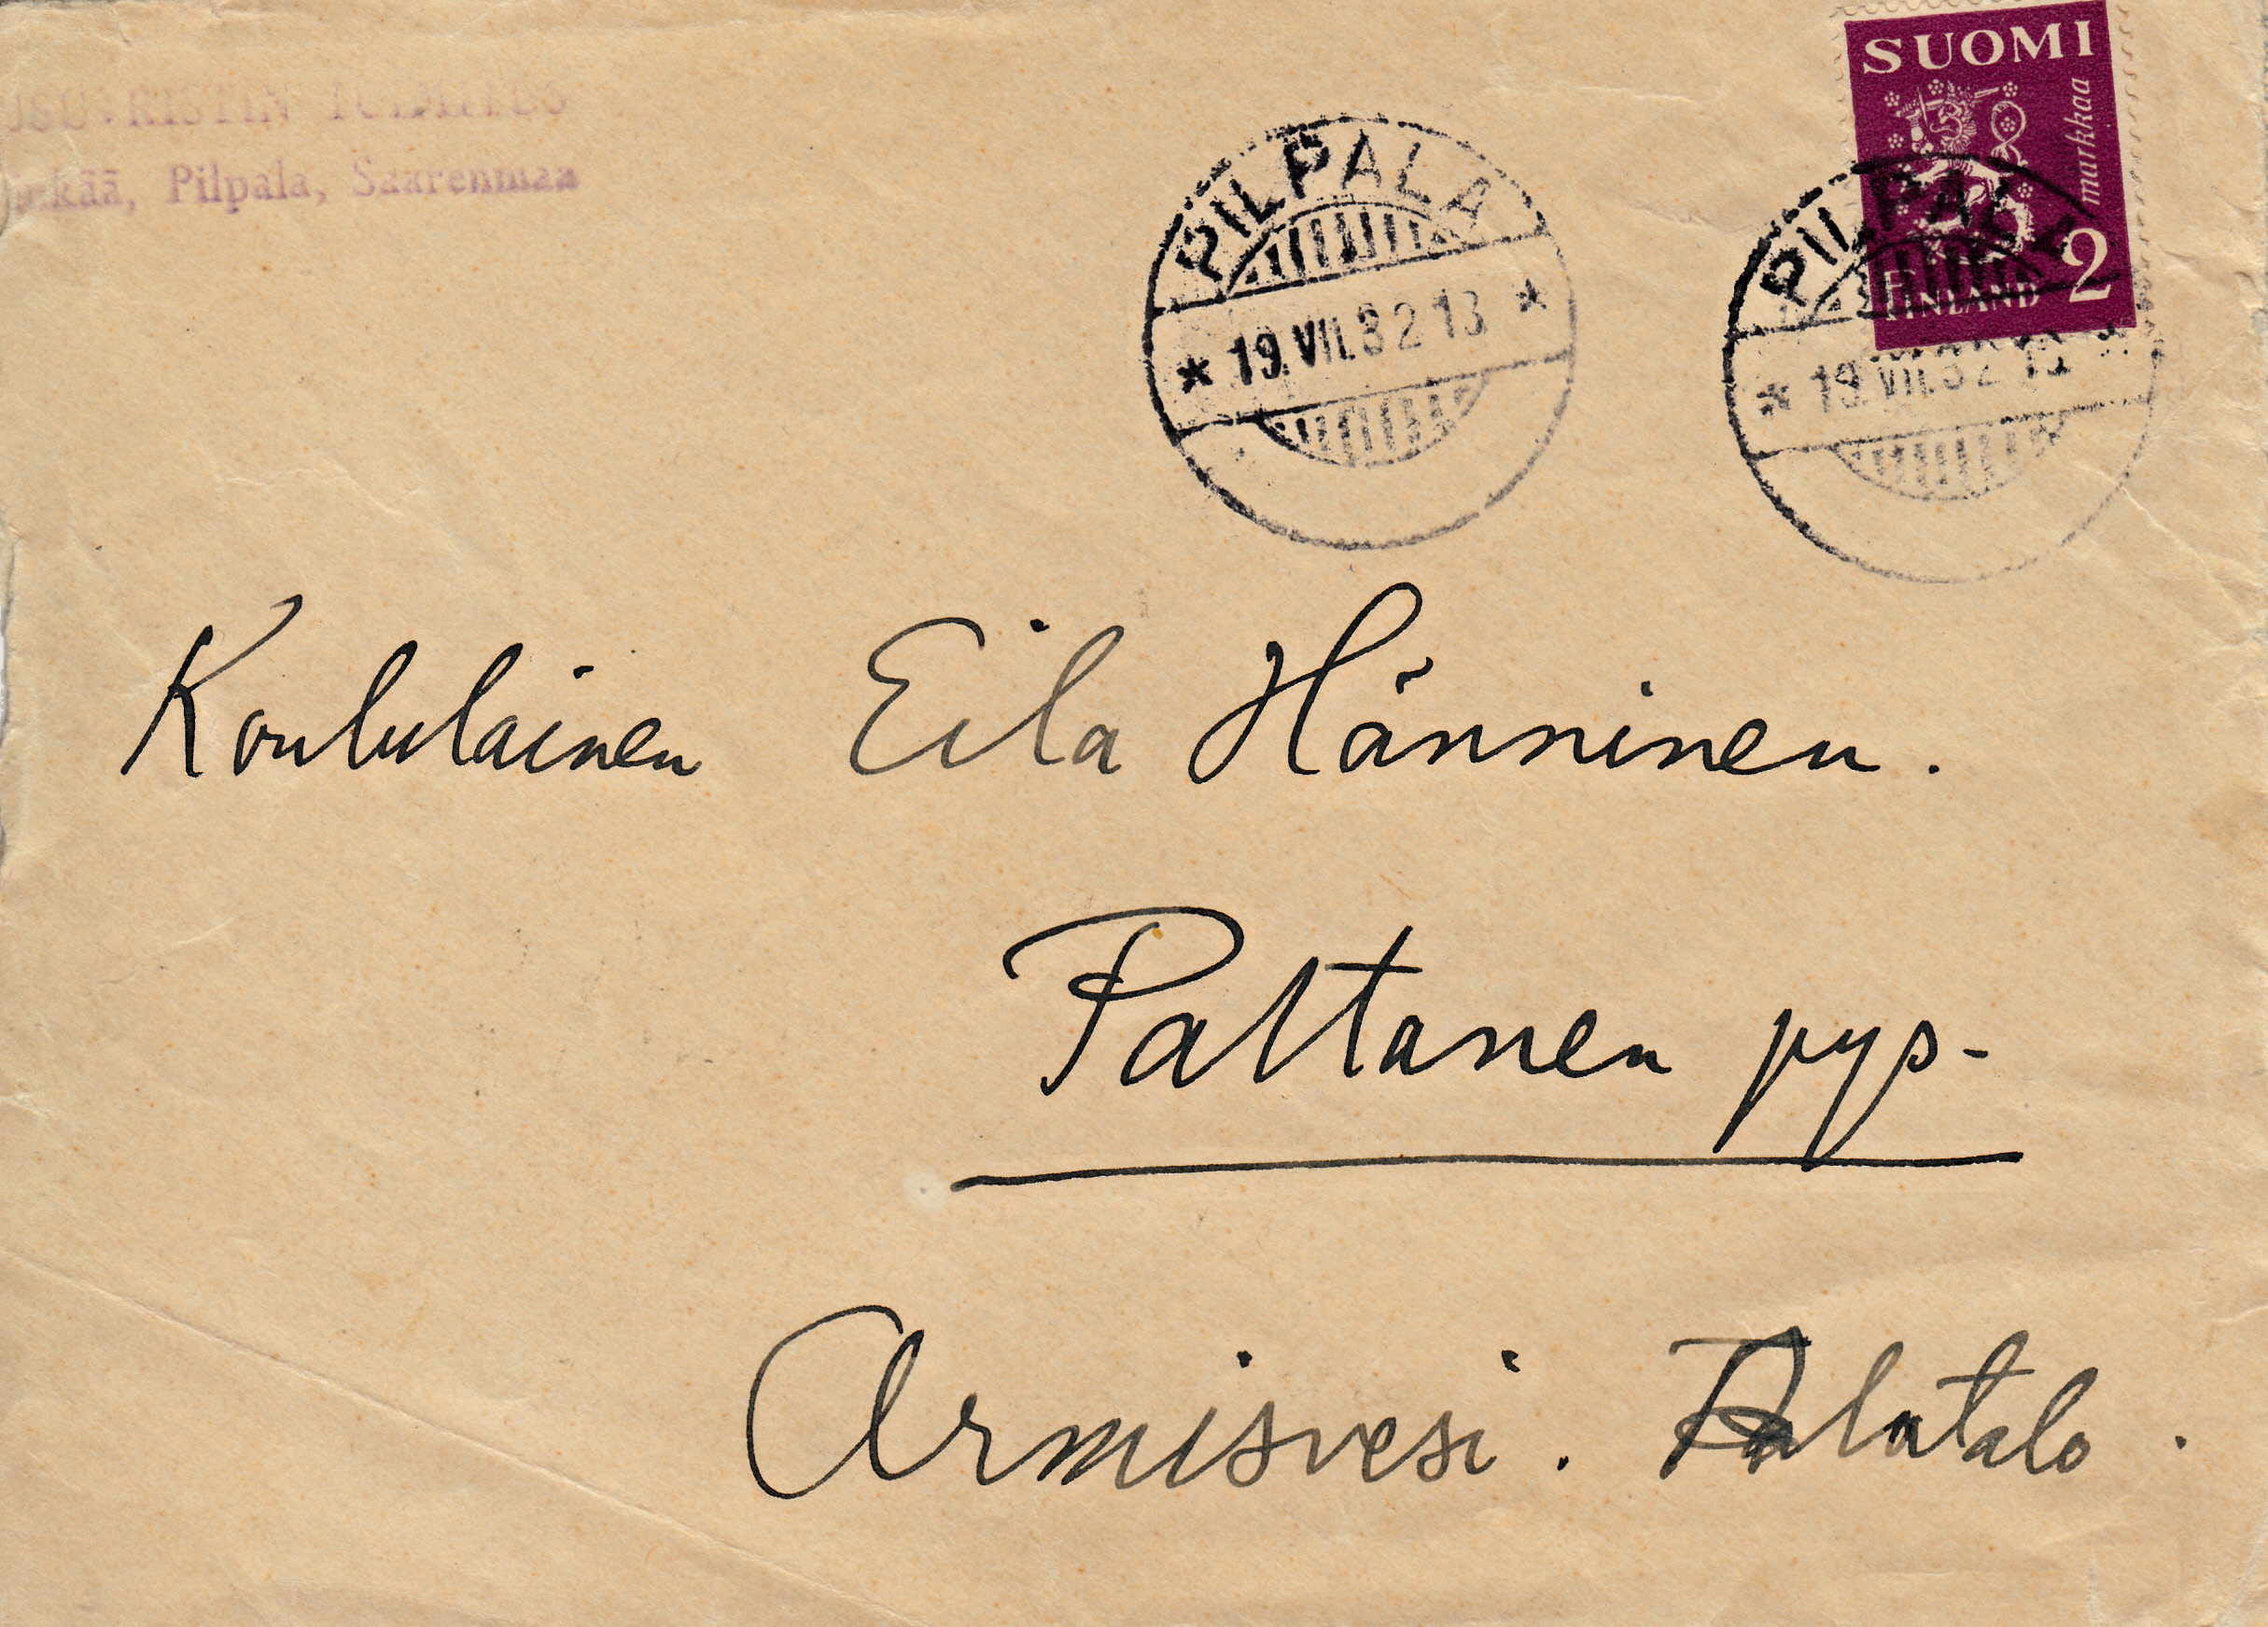 RISTIN TOIMITUS
Pilpala, Saarenmaa
SUOMI
markkaa
FINLAND 2
PILPALA
* 19.VII.32 13 *
PILPALA
* 19.VII.32 13
Koululainen Eila Hänninen.
Paltanen pys-
Armisvesi. Alatalo.